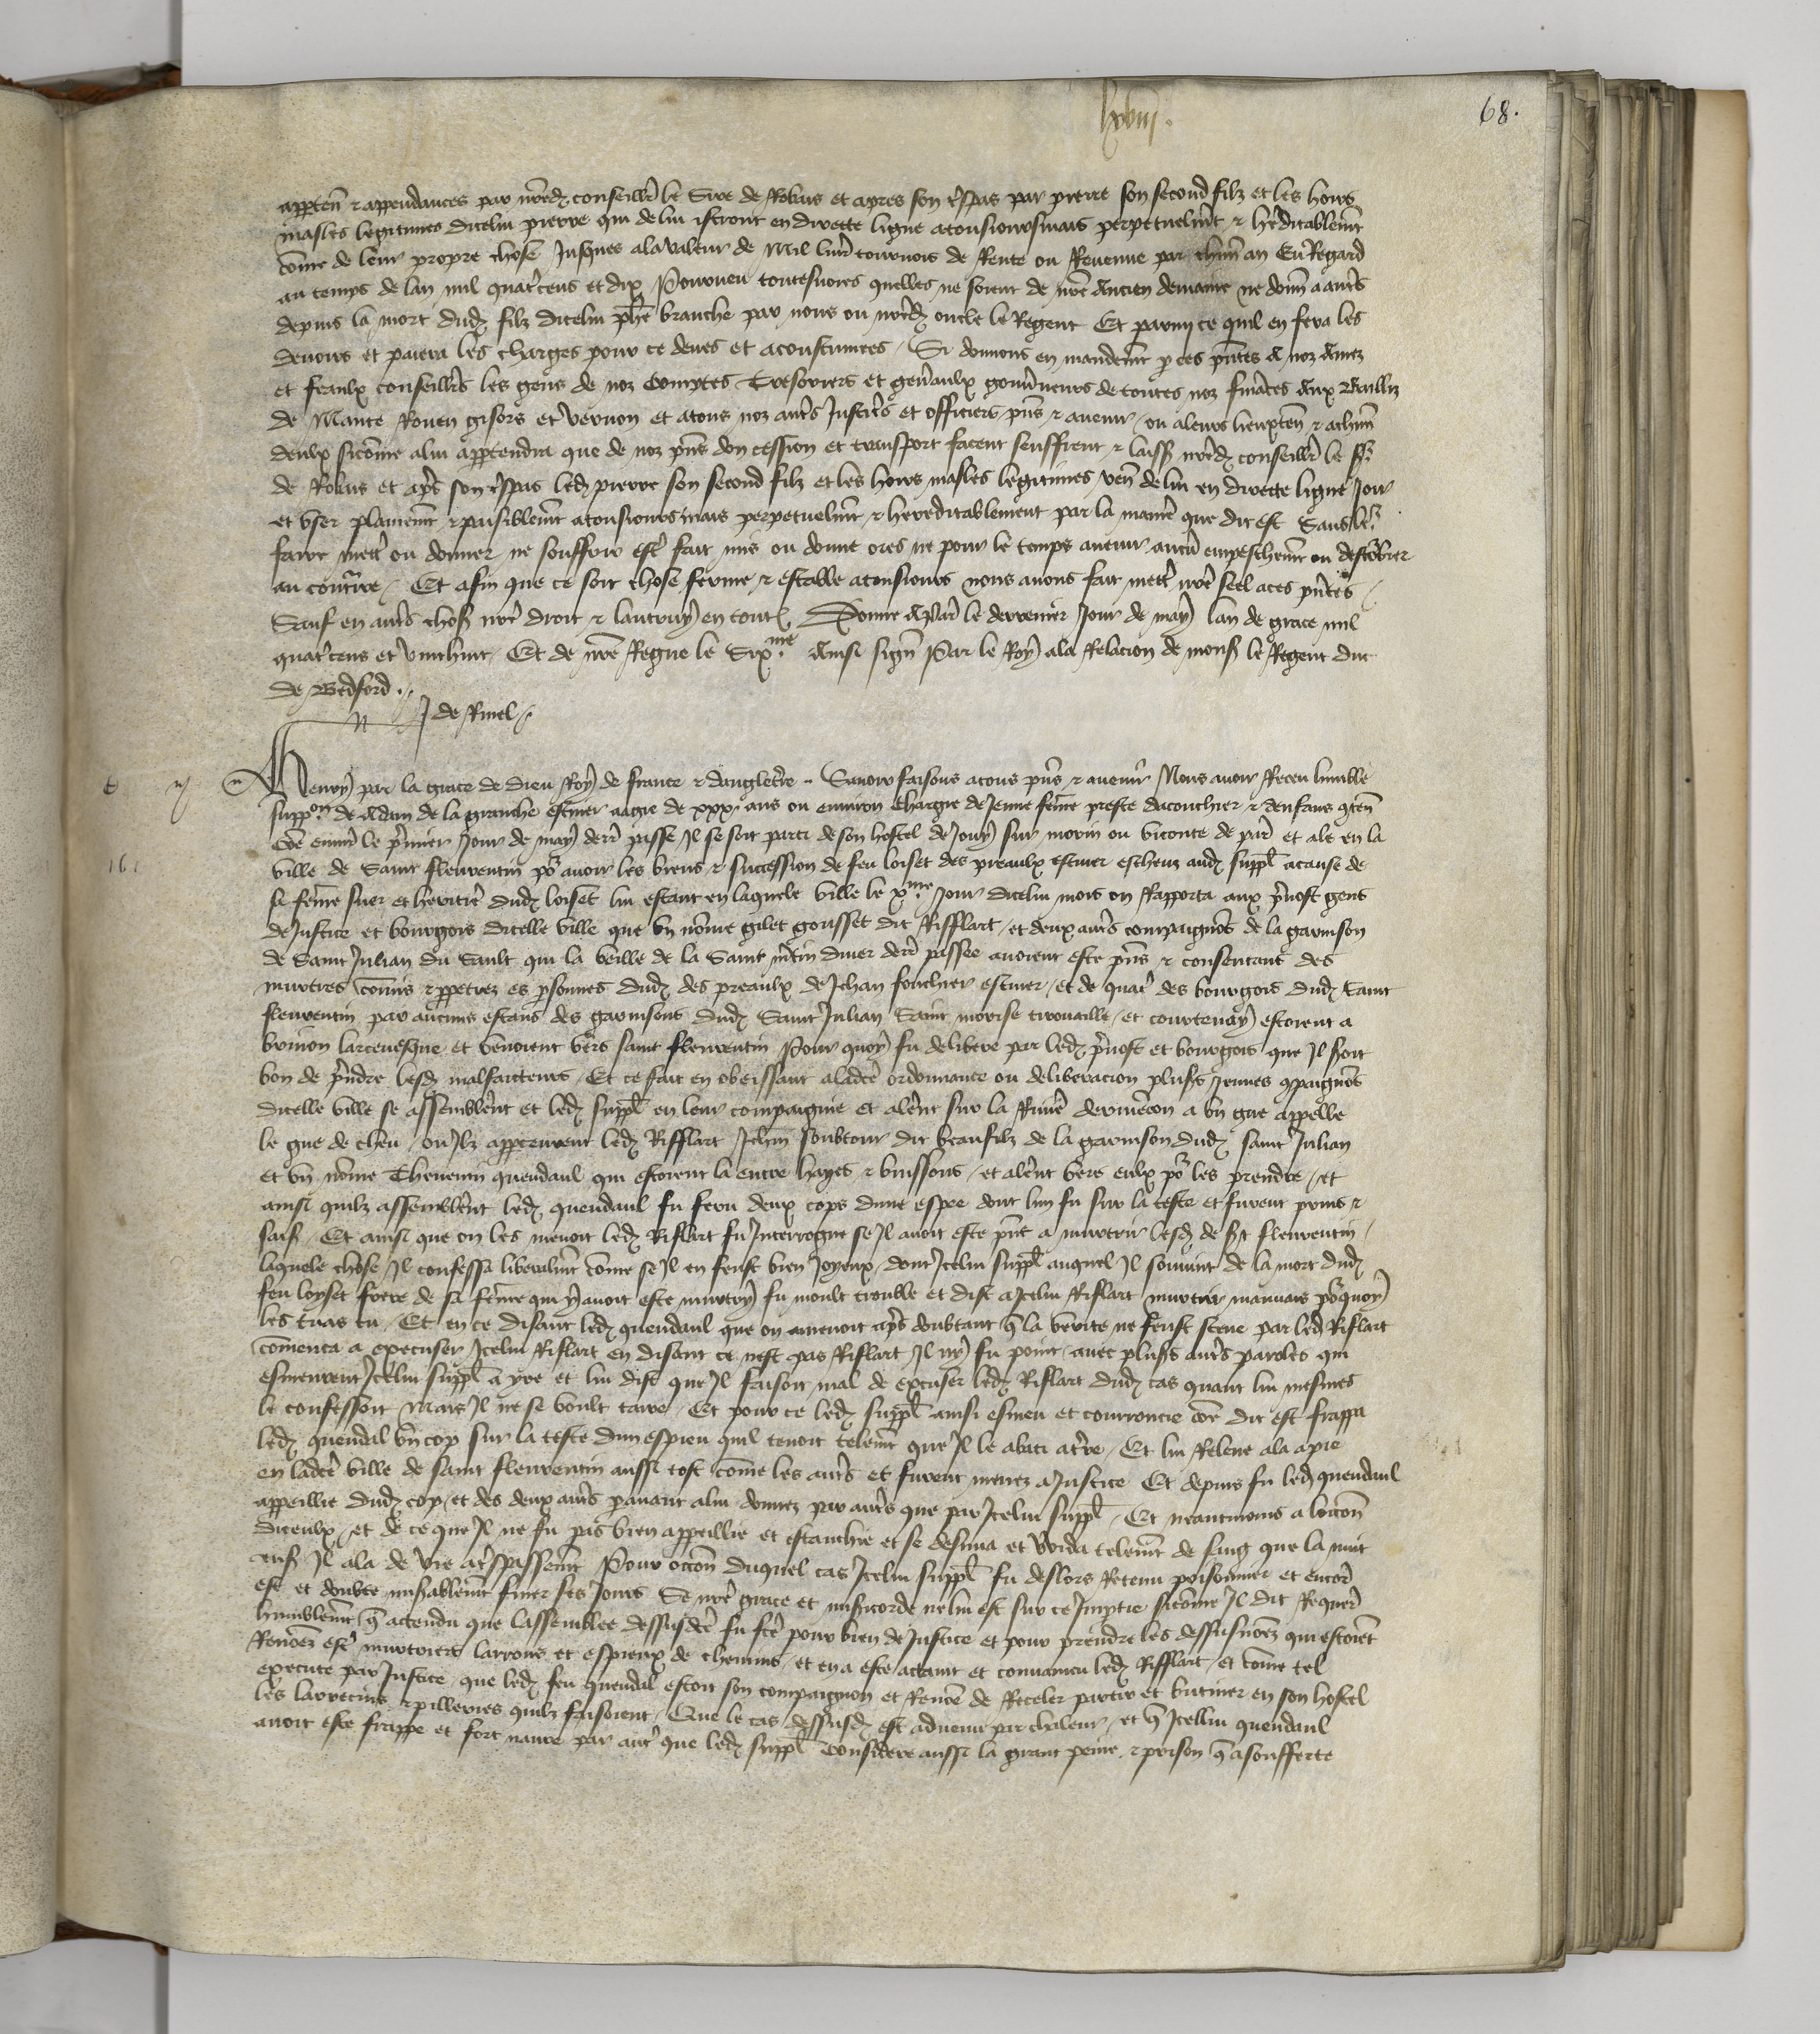 lxviii.
68.
apparten̄ & appendances par nr̄edꝫ conseillr̄ le Sire de Robais et apres son tr̄spas par pierre son second filz et les hoirs
masles legitimes dicelui pierre qui de lui istront en directe ligne atousioursmais perpetuelmt̄ & hr̄editablemt̄
cōme de leur propre chose Jusques ala valeur de Mil livr̄ tournois de Rente ou Revenue par chūn an Eu Regard
au temps de lan mil quatr̄cens et dix Pourveu toutesvoies quelles ne soient de nr̄e Ancien demaine ne donn̄ a autr̄s
depuis la mort dudꝫ filz dicelui phē branche par nous ou nr̄edꝫ oncle le Regent Et parmy ce quil en fera les
devoirs et paiera les charges pour ce deues et acoustumees / Si donnons en mandemt̄ p ces pn̄tes A noz Amez
et feaulx conseillr̄s les gens de noz Comptes Tresoriers et gen̄aulx gouvn̄eurs de toutes noz fināces Aux Bailliz
de Mante Rouen gisors et Vernon et atous noz autr̄s Justic̄rs et officiers pn̄s & avenir / ou aleurs lieuxten̄ & achūn
deulx sicōme alui appartendra que de noz pn̄s don cession et transport facent seuffrent & laiss̄ nr̄edꝫ conseillr̄ le sʳ
de Robais et apr̄s son tr̄spas ledꝫ pierre son second filz et les hoirs masles legitimes / ven̄ de lui en directe ligne Joir
et user plainemt̄ & paisiblemt̄ atousioursmais perpetuelmt̄ & hereditablement par la manie͂ que dit est Sans le͂
faire mettr̄ ou donner ne souffrir estr̄ fait mis ou donne ores ne pour le temps avenir aucū empeschemt̄ ou destōrbier
au contr̄ire / Et afin que ce soit chose ferme & estable atousiours nous avons fait mettr̄ nr̄e seel aces pn̄tes /
Sauf en autr̄s chos̄ nr̄e droit & lautruy en tout Donne A Par̄ le derrenier Jour de may lan de grace mil
quatr̄cens et vinthuit / Et de nr̄e Regne le Sixᵐᵉ Ainsi sign̄ Par le Roy ala Relacion de mons̄ le Regent duc
de Bedford./.
J de Rinel /.
Henry par la grace de dieu Roy de france & dangletr̄re .. Savoir faisons atous pn̄s & avenir Nous avoir Receu humble
suppᵒⁿ de Adam de la granche escuier aagie de xxxi ans ou environ Chargie de Jeune fēme preste dacouchier & denfans 9ten̄
Que envir̄ le pr̄mier Jour de may derr̄ passe Il se soit parti de son hostel de Jouy sur morin ou viconte de par̄ et ale en la
161
ville de Saint fleurentin po͂ avoir les biens & succession de feu loiset des preaulx escuier escheuz audꝫ suppl̄ acause de
sa fēme suer et heritie͂ dudꝫ loiset lui estant en laquele ville le xᵐᵉ Jour dicelui mois on Rapporta aux pr̄vost gens
de Justice et bourgois dicelle ville que un nōme gilet gousset dit Rifflart / et deux autr̄s compaignōs de la garnison
de Saint Julian du Sault qui la veille de la Saint mr̄tin diver derr̄ passee avoient este pn̄s & consentans des
murtres cōmis & ppetrez es psonnes dudꝫ des preaulx de Jehan fouchier escuier / et de quatr̄ des bourgois dudꝫ Saint
fleurentin par aucuns estans des garnisons dudꝫ Saint Julian Saint morise tirouaille / et courtenay estoient a
brinon larcevesque et venoient vers saint fleurentin Pour quoy fu delibere par ledꝫ pr̄vost et bourgois que Il seroit
bon de pr̄ndre lesdꝫ malfaicteurs / Et ce fait en obeissant aladcē ordonnance ou deliberacion plus̄s Jeunes 9paignōs
dicelle ville se assemblēnt et ledꝫ suppl̄ en leur compaignie et alēnt sur la Rivie͂ dermencon a un gue appelle
le gue de cheu / ou Ilz appceurent ledꝫ Rifflart Jehan soubtour dit beaufilz de la garnison dudꝫ saint Julian
et un nōme Thevenin quendaul qui estoient la entre hayes & buissons / et alēnt vers eulx po͂ les prendre / et
ainsi quilz assemblēnt ledꝫ quendaul fu feru deux cops dune espee dont lun fu sur la teste et furent prins &
sais̄ / Et ainsi que on les menoit ledꝫ Riflart fu Interrogue se Il avoit este pn̄t a murtrir lesdꝫ de sͭ fleurentin /
laquele chose Il confessa liberalmt̄ cōme se Il en feust bien Joyeux / dont Icelui suppl̄ auquel Il souvint de la mort dudꝫ
feu loyset frere de sa fēme qui y avoit este murtry fu moult trouble et dist a Icelui Riflart murtrier mauvais po͂quoy
les tuas tu / Et en ce disant ledꝫ quendaul que on amenoit apr̄s doubtant q̄ la verite ne feust sceue par ledꝫ Riflart
cōmenca a excuser Icelui Riflart en disant ce nest pas Riflart Il ny fu point / avec plus̄s autr̄s paroles qui
esmeurent Icelui suppl̄ a yre et lui dist que Il faisoit mal de excuser ledꝫ Riflart dudꝫ cas quant lui mesmes
le confessoit Mais Il ne se voult taire / Et pour ce ledꝫ suppl̄ ainsi esmeu et courroucie cōe dit est frappa
ledꝫ quendal un cop sur la teste dun espieu quil tenoit telemt̄ que Il le abati atr̄re / Et lui Releve ala apie
en ladcē ville de saint fleurentin aussi tost cōme les autr̄s et furent menez a Justice Et depuis fu ledꝫ quendaul
appeillie dudꝫ cop / et des deux autr̄s pavant alui donnez par autr̄s que par Icelui suppl̄ / Et neantmoins a loccōn
diceulx / et de ce que Il ne fu pas bien appeillie et estanchie et se desvua et vuida telemt̄ de sang que la nuit
ens̄ Il ala de vie atr̄spassemt̄ Pour occōn duquel cas Icelui suppl̄ fu deslors Retenu prisonnier et encor̄
est et doubte mis̄ablemt̄ finer ses Jours Se nr̄e grace et mis̄icorde ne lui est sur ce Imptie sicōme Il dit Requer̄
humblemt̄ q̄ actendu que lassemblee dessusdcē fu fc̄e pour bien de Justice et pour prendre les dessusnōez qui estoient
Renōmez estr̄ murtriers larrons et espieurs de chemins / et en a este actaint et convaincu ledꝫ Rifflart / et cōme tel
execute par Justice / que ledꝫ feu quendal estoit son compaignon et Renōme de Receler partir et butiner en son hostel
les larrecins & pilleries quilz faisoient / Que le cas dessusdꝫ est advenu par chaleur / et q̄ Icellui quendaul
avoit este frappe et fort navre par autr̄ que ledꝫ suppl̄ Considere aussi la grant peine & prison q̄ a soufferte